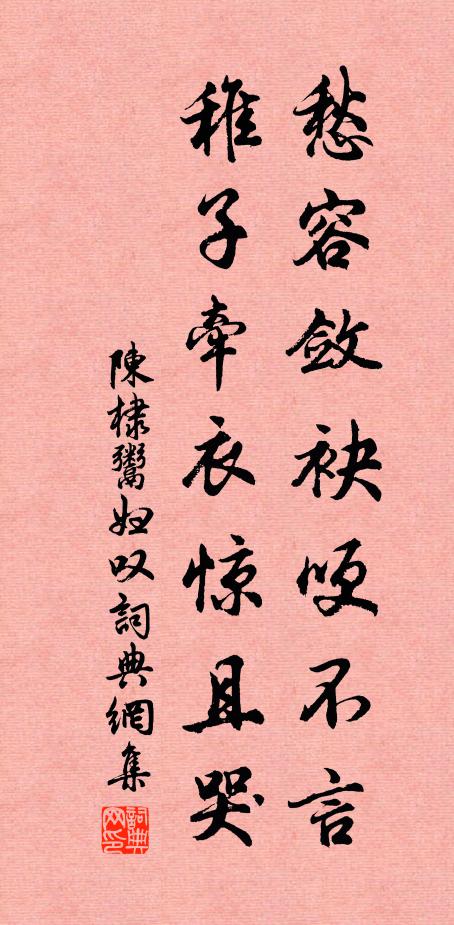 愁容斂袂哽不言
稚子牽衣惊且哭
陳棣鬻妇叹詞典網集
詞典网印